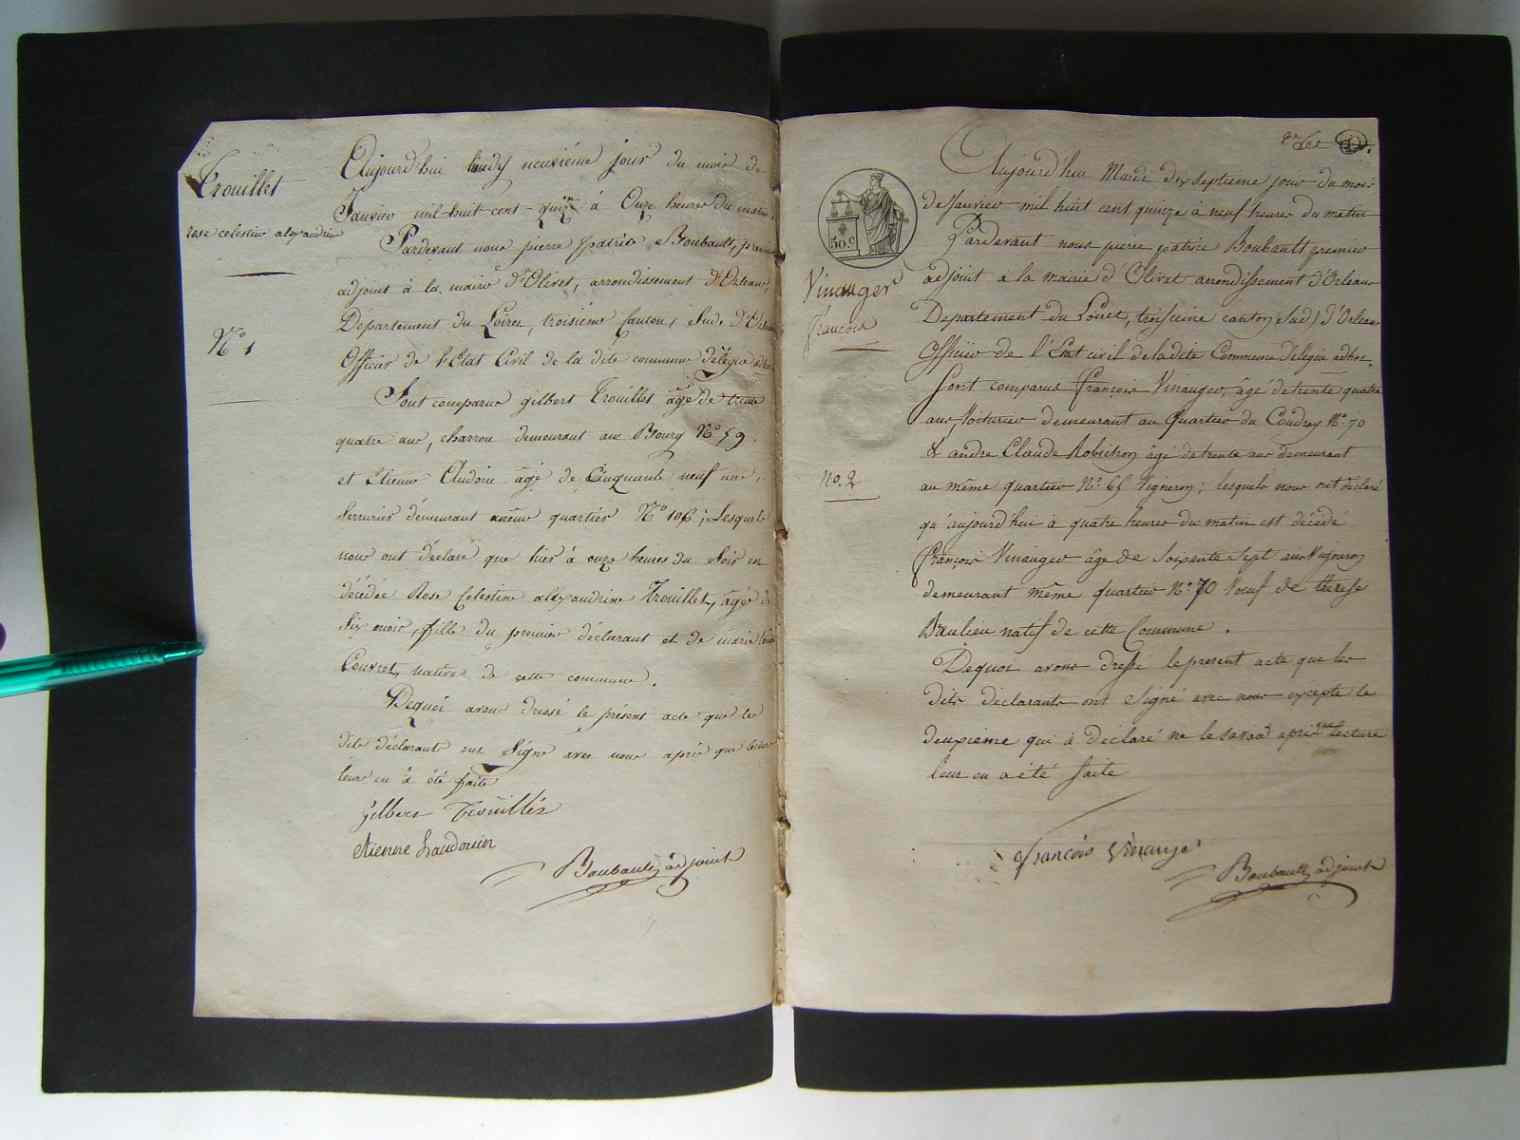 Trouillet
rose celestine alexandrine
N.º 1
Aujourd'hui lundy neuvième jour du mois de
Janvier mil huit cent quinze à Onze heures du matin.
Pardevant nous pierre patrice Boubault, premier
adjoint à la mairie d'Olivet, arrondissement d'Orléans,
Département du Loiret, troisième Canton, Sud, d'Orléans
Officier de l'Etat Civil de la dite commune délégué adhoc
Sont comparus gilbert Trouillet âgé de trente
quatre ans, charron demeurant au Bourg N.º 59.
et Etienne Audoin âgé de Cinquante neuf ans,
Serrurier demeurant même quartier N.º 106; Lesquels
nous ont déclaré que hier à onze heures du Soir est
décédée Rose Celestine alexandrine Trouillet, âgée de
Six mois, fille du premier déclarant et de marie
Couvret, native de cette commune.
Dequoi avons dressé le présent acte que les
dits déclarant ont Signé avec nous après que lecture
leur en à été faite
gilbert Trouillet
Etienne haudouin
Boubault adjoint
50 c
Vinauger
françois
No. 2
Aujourd'hui Mardi dix Septieme jour du mois
de Janvier mil huit cent quinze à neuf heures du matin
Pardevant nous pierre patrice Boubault premier
adjoint a la mairie d'Olivet arrondissement d'Orléans
Departement du Loiret, troisieme canton (Sud) d'Orléans
officier de l'Etat civil de la dite Commune délégué adhoc
Sont comparus françois Vinauger, âgé de trente quatre
ans, Voiturier demeurant au Quartier du Coudray N.º 70
& andré Claude Robichon âgé de trente ans demeurant
au même quartier N.º 65 Vigneron; lesquels nous ont déclaré
qu'aujourd'hui à quatre heures du matin est décédé
françois Vinauger âgé de Soixante Sept ans Vigneron
demeurant même quartier N.º 70 Veuf de therese
Beaulieu natif de cette Commune.
Dequoi avons dressé le present acte que les
dits déclarants ont Signé avec nous excepté le
deuxième qui à déclaré ne le Savoir après que Lecture
leur en a été faite
françois Vinauger
Boubault adjoint